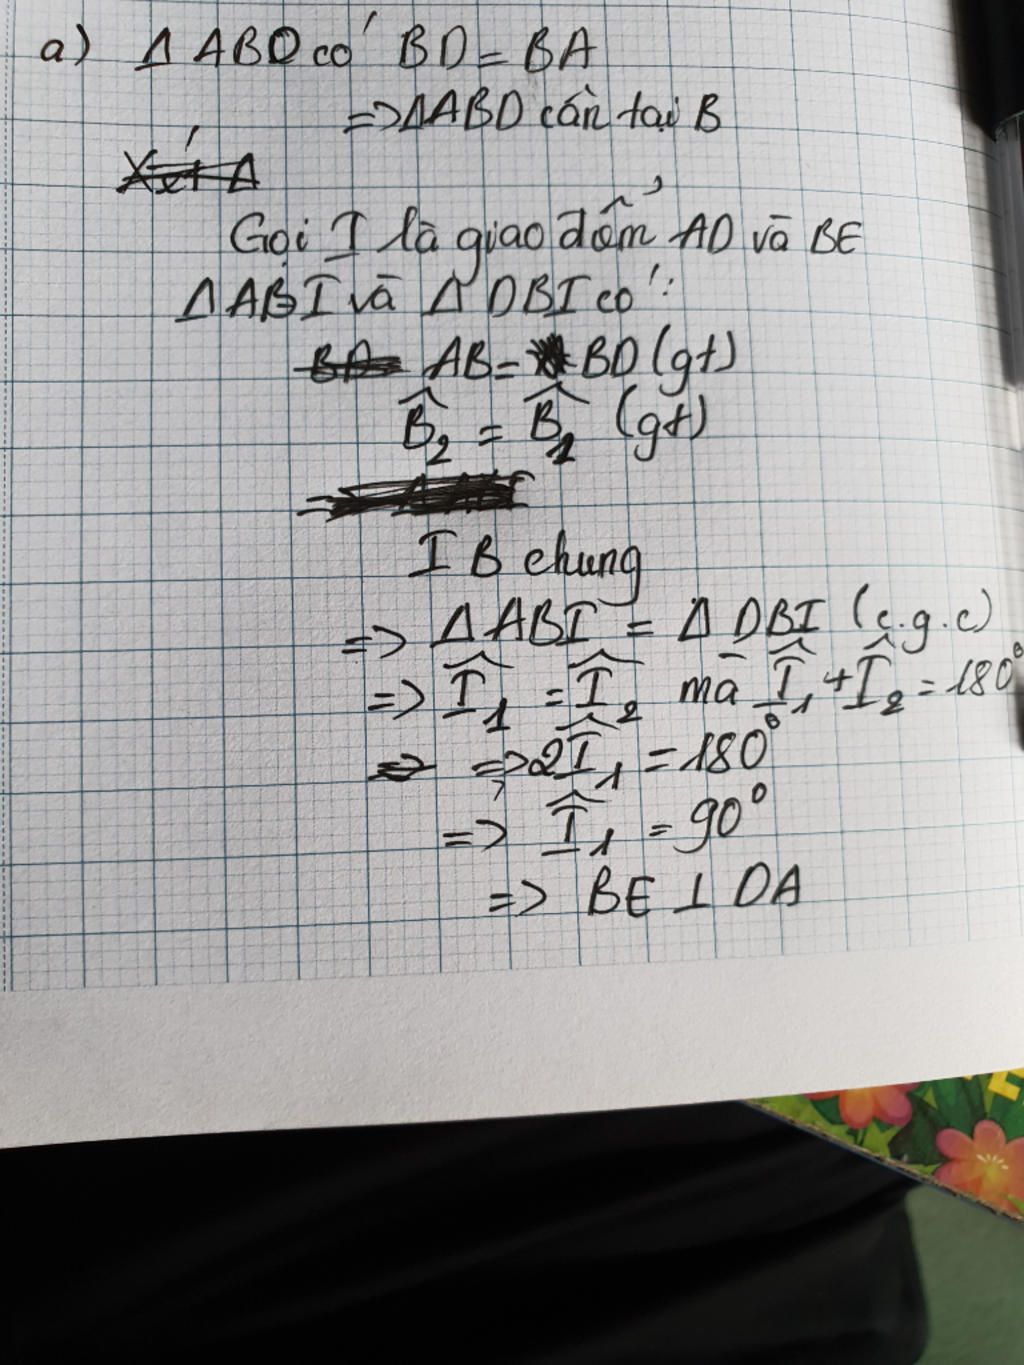 a) Δ ABD có BD = BA
=> ΔABD cân tại B
Xét Δ
Gọi I là giao đổm AD và BE
Δ ABI và Δ DBI có:
BA AB = BD (gt)
B̂₂ = B̂₁ (gt)
I B chung
=> Δ ABI = Δ DBI (c.g.c)
=> Î₁ = Î₂ mà Î₁ + Î₂ = 180°
=> => 2Î₁ = 180°
=> Î₁ = 90°
=> BE ⊥ DA